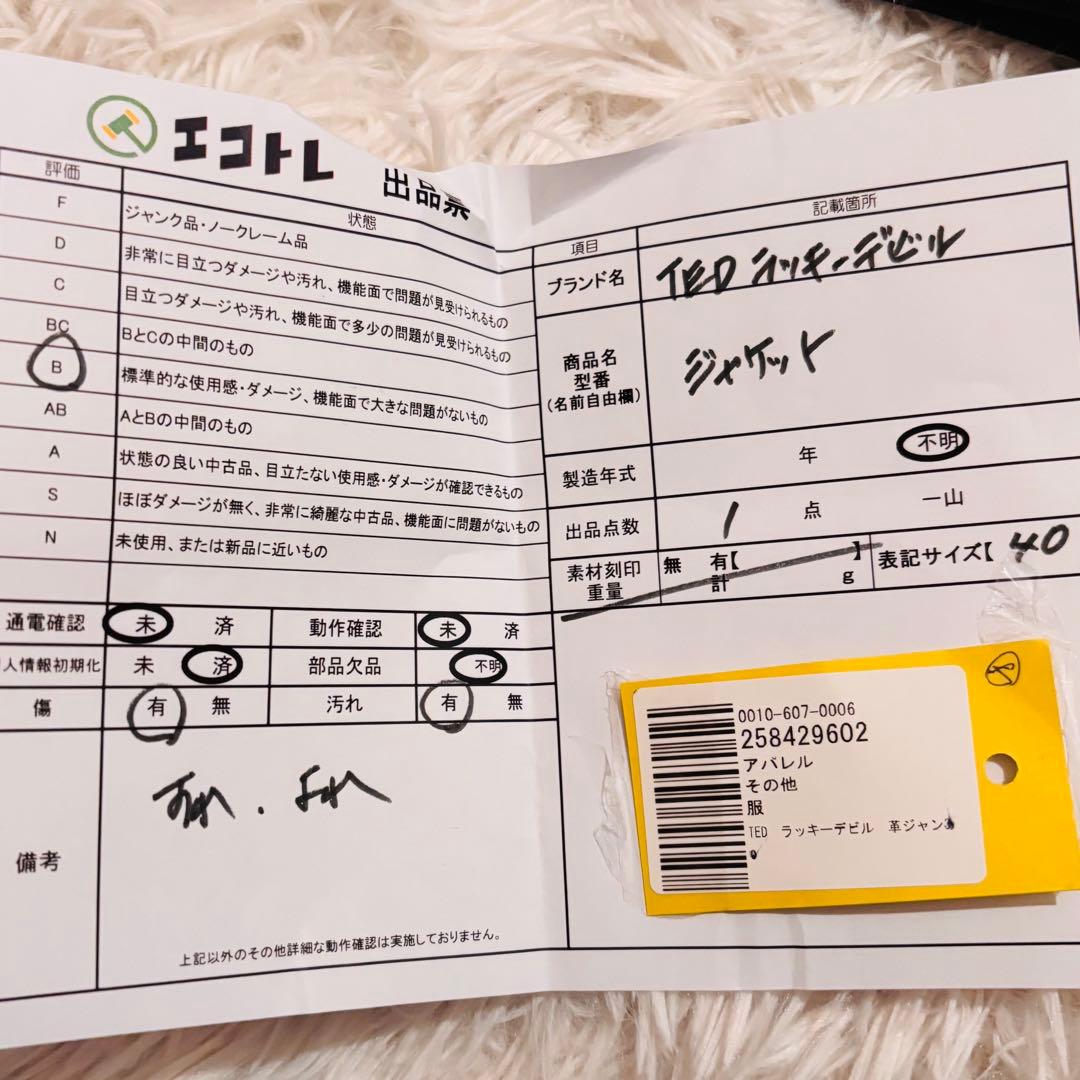 エコトレ 出品票
評価 状態
F ジャンク品・ノークレーム品
D 非常に目立つダメージや汚れ、機能面で問題が見受けられるもの
C 目立つダメージや汚れ、機能面で多少の問題が見受けられるもの
BC BとCの中間のもの
B 標準的な使用感・ダメージ、機能面で大きな問題がないもの
AB AとBの中間のもの
A 状態の良い中古品、目立たない使用感・ダメージが確認できるもの
S ほぼダメージが無く、非常に綺麗な中古品、機能面に問題がないもの
N 未使用、または新品に近いもの
通電確認 未 済 動作確認 未 済
人情報初期化 未 済 部品欠品 不明
傷 有 無 汚れ 有 無
備考
すれ、よれ
上記以外のその他詳細な動作確認は実施しておりません。
項目 記載箇所
ブランド名 TED ラッキーデビル
商品名
型番
(名前自由欄)
ジャケット
製造年式 年 不明
出品点数 1 点 一山
素材刻印 無 有【 】
重量 計 g
表記サイズ【 40
0010-607-0006
258429602
アパレル
その他
服
TED ラッキーデビル 革ジャン